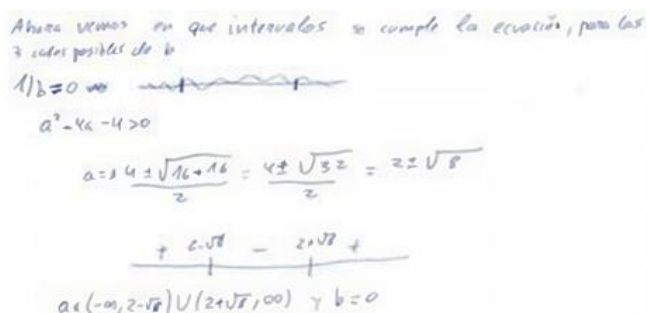 Ahora vemos en que intervalos se cumple la ecuación, para las
3 valores posibles de b
1/ b=0
a²-4a-4>0
a= 4±√16+16 / 2 = 4±√32 / 2 = 2±√8
+ 2-√8 - 2+√8 +
a∈(-∞,2-√8)∪(2+√8,∞) y b=0